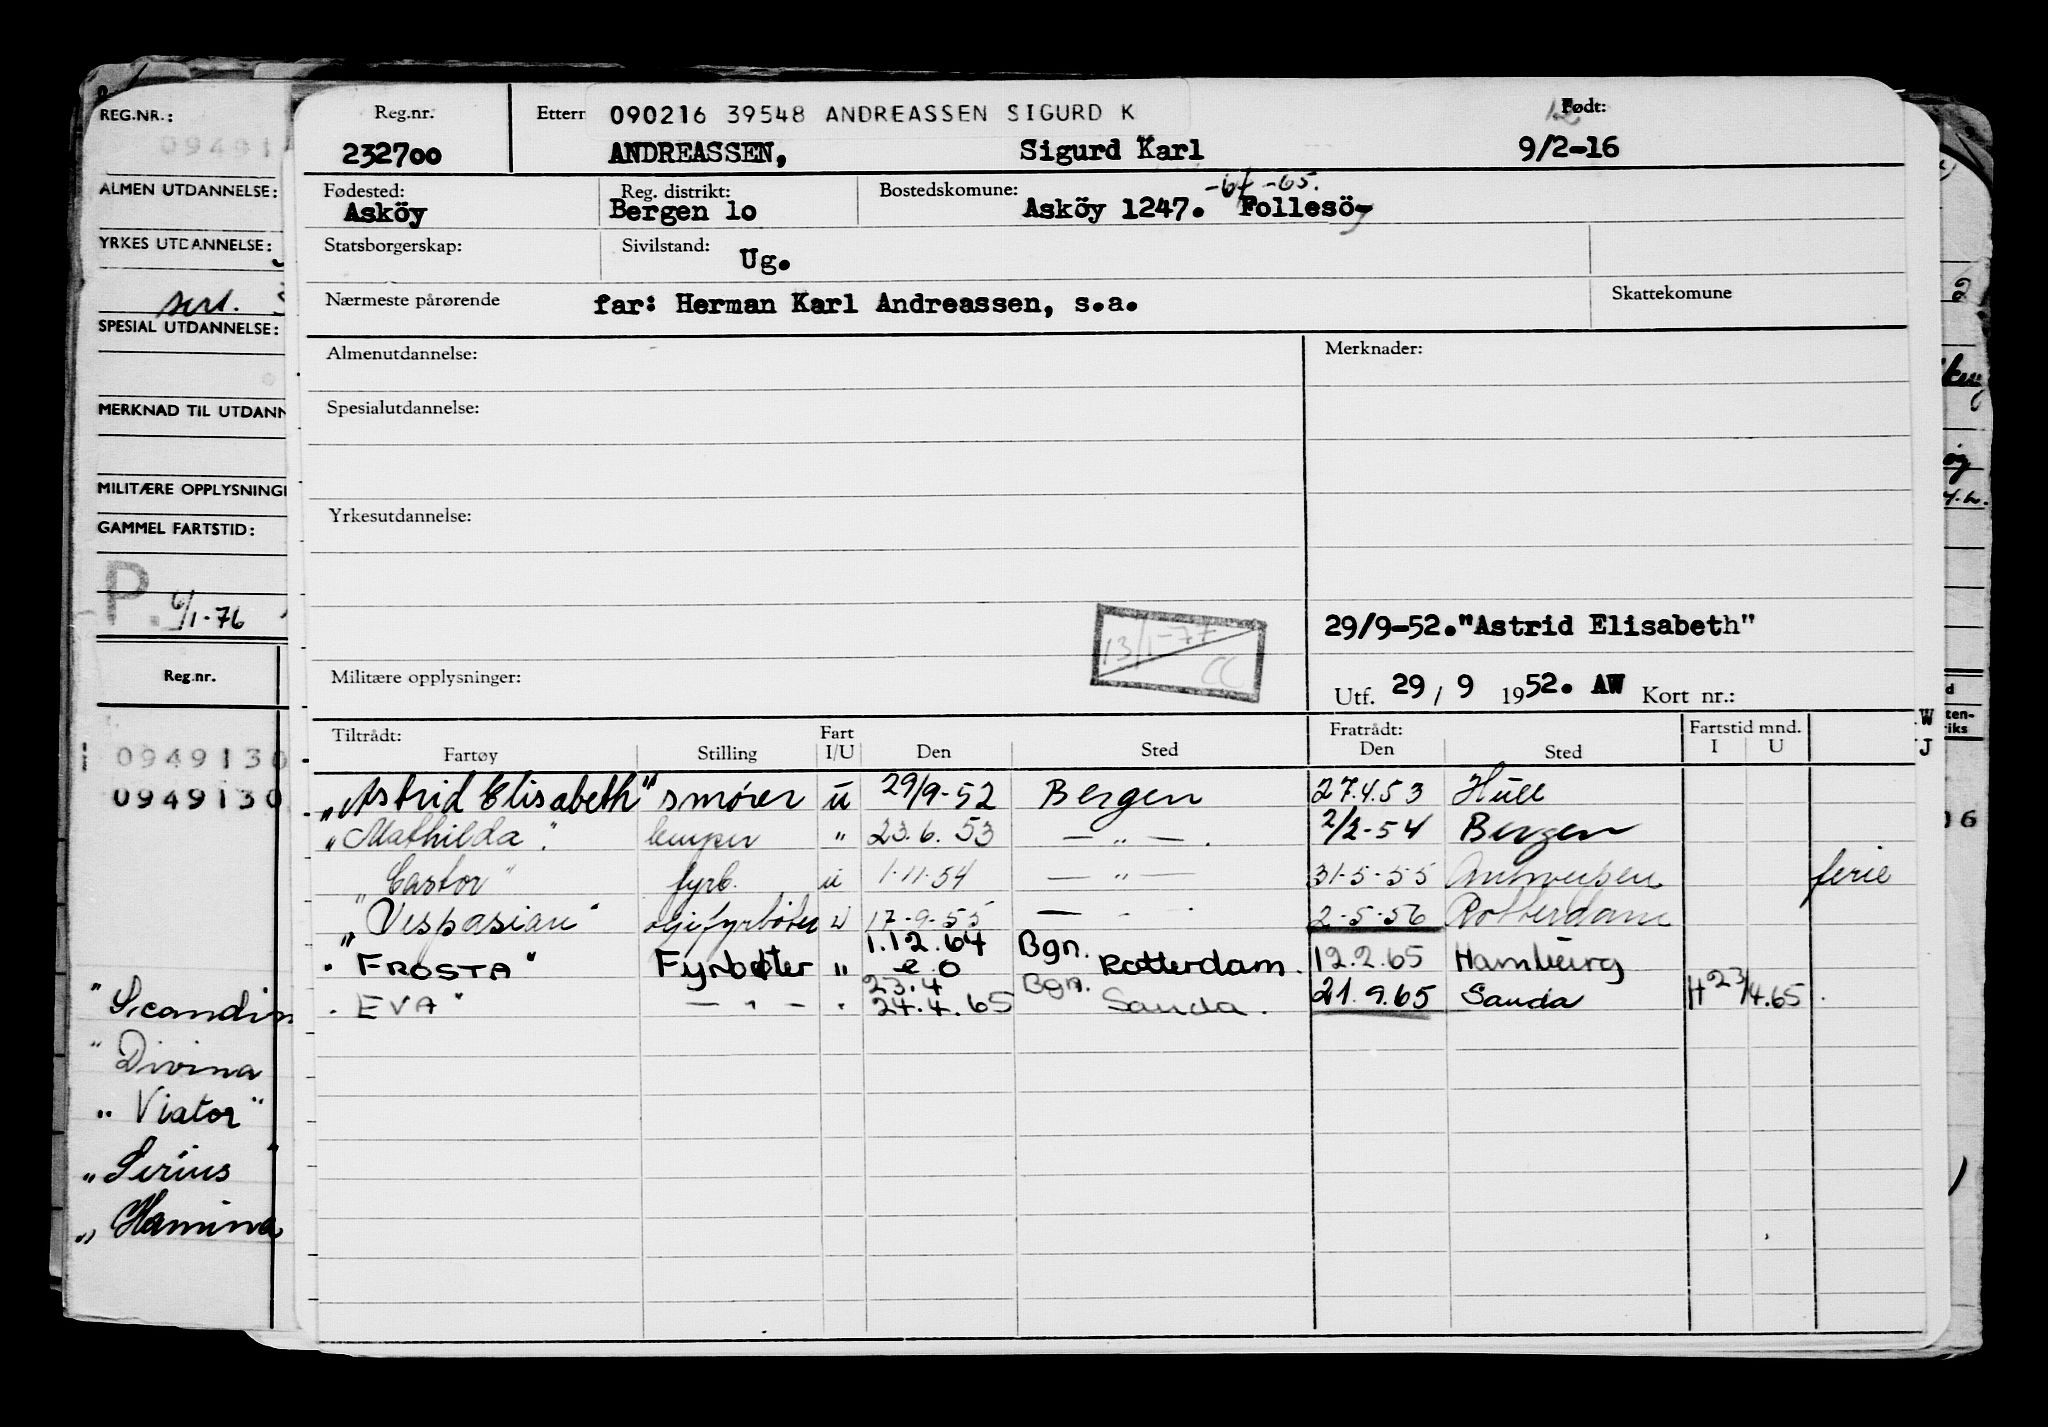 REG.NR.:
ALMEN UTDANNELSE:
YRKES UTDANNELSE:
SPESIAL UTDANNELSE:
MERKNAD TIL UTDANN
MILITÆRE OPPLYSNING
GAMMEL FARTSTID:
P. 6/1-76
Reg.nr.
0949130
0949130
"Scandin
"Divina
"Viator"
"Sirius"
"Hamina
Reg.nr. Ettern 090216 39548 ANDREASSEN SIGURD K Født:
232700 ANDREASSEN, Sigurd Karl 9/2-16
Fødested: Reg. distrikt: Bostedskommune: -64 -65.
Asköy Bergen 1o Asköy 1247. Follesö
Statsborgerskap: Sivilstand: Ug.
Nærmeste pårørende far: Herman Karl Andreassen, s.a. Skattekomune
Almenutdannelse: Merknader:
Spesialutdannelse:
Yrkesutdannelse:
13/1-77 CC
29/9-52."Astrid Elisabeth"
Militære opplysninger: Utf. 29 / 9 1952. AW Kort nr.:
Tiltrådt: Fart Fratrådt: Fartstid mnd.
Fartøy Stilling I/U Den Sted Den Sted I U
"Astrid Elisabeth" smører u 29/9-52 Bergen 27.4.53 Hull
"Mathilda". lemper " 23.6.53 — " — . 2/2-54 Bergen
"Castor" fyrb. u 1-11-54 — " — 31-5-55 Antwerpen ferie
"Vespasian" oljefyrbøter u 17-9-55 — - - 2-5-56 Rotterdam
1.12.64 Bgn.
"FROSTA" Fyrbøter " 2.0 Rotterdam. 12.2.65 Hamburg
23.4 Bgn.
"EVA" — " — " 24.4.65 Sauda. 21.9.65 Sauda H 23/4.65